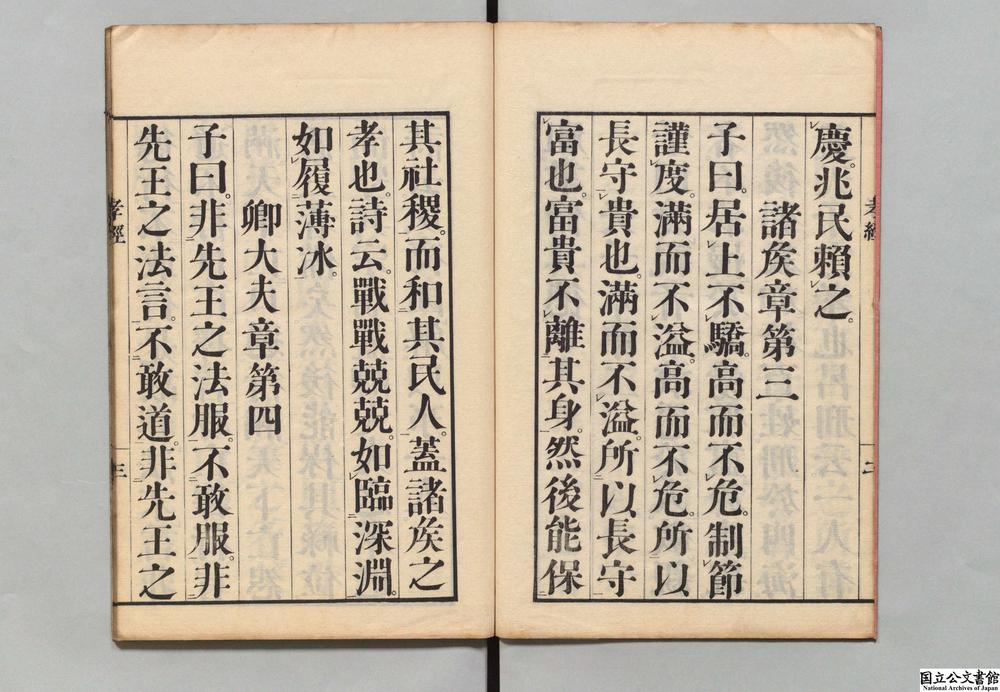 慶。兆民賴之。
諸矦章第三
子曰。居上不驕。高而不危。制節
謹度。滿而不溢。高而不危。所以
長守貴也。滿而不溢。所以長守
富也。富貴不離其身。然後能保
孝經
二
其社稷。而和其民人。蓋諸矦之
孝也。詩云。戰戰兢兢。如臨深淵。
如履薄冰。
卿大夫章第四
子曰。非先王之法服。不敢服。非
先王之法言。不敢道。非先王之
孝經
三
国立公文書館
National Archives of Japan